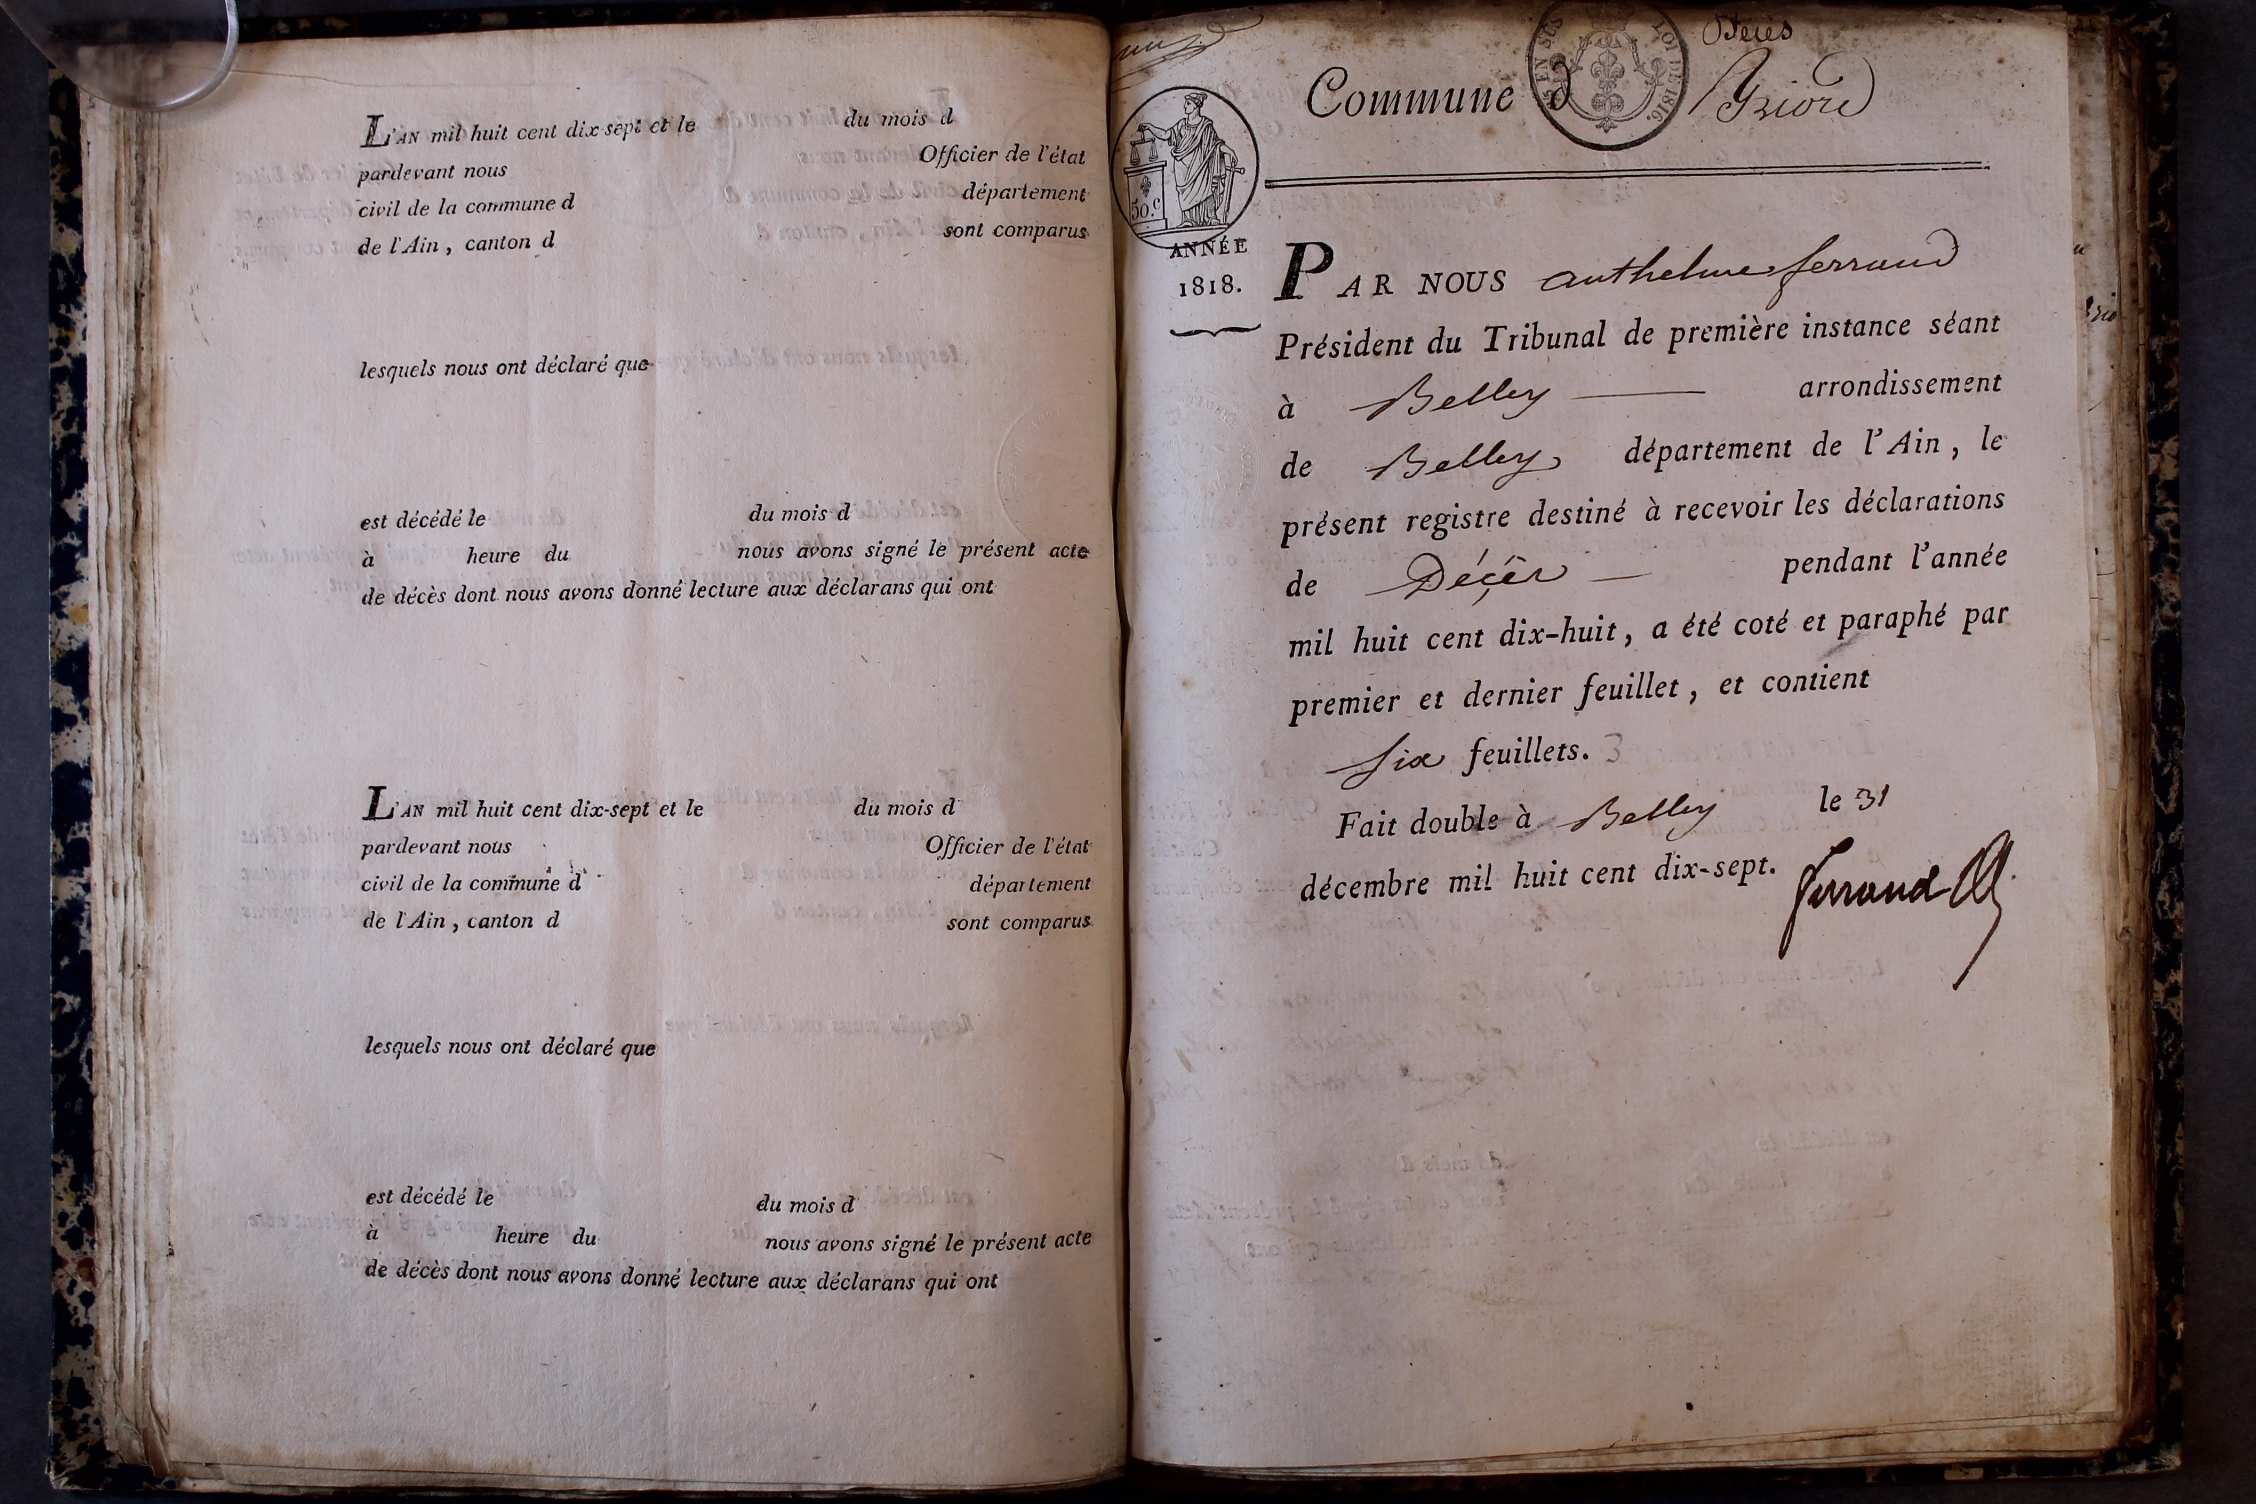 L'AN mil huit cent dix-sept et le du mois d
pardevant nous Officier de l'état
civil de la commune d département
de l'Ain, canton d sont comparus
lesquels nous ont déclaré que
est décédé le du mois d
à heure du nous avons signé le présent acte
de décès dont nous avons donné lecture aux déclarans qui ont
L'AN mil huit cent dix-sept et le du mois d
pardevant nous Officier de l'état
civil de la commune d département
de l'Ain, canton d sont comparus
lesquels nous ont déclaré que
est décédé le du mois d
à heure du nous avons signé le présent acte
de décès dont nous avons donné lecture aux déclarans qui ont
EN SUS LOI DE 1816.
Commune d
50.c
ANNÉE
1818.
PAR NOUS anthelme ferrand
Président du Tribunal de première instance séant
à Belley arrondissement
de Belley département de l'Ain, le
présent registre destiné à recevoir les déclarations
de Décès pendant l'année
mil huit cent dix-huit, a été coté et paraphé par
premier et dernier feuillet, et contient
six feuillets. 3
Fait double à Belley le 31
décembre mil huit cent dix-sept.
ferrand